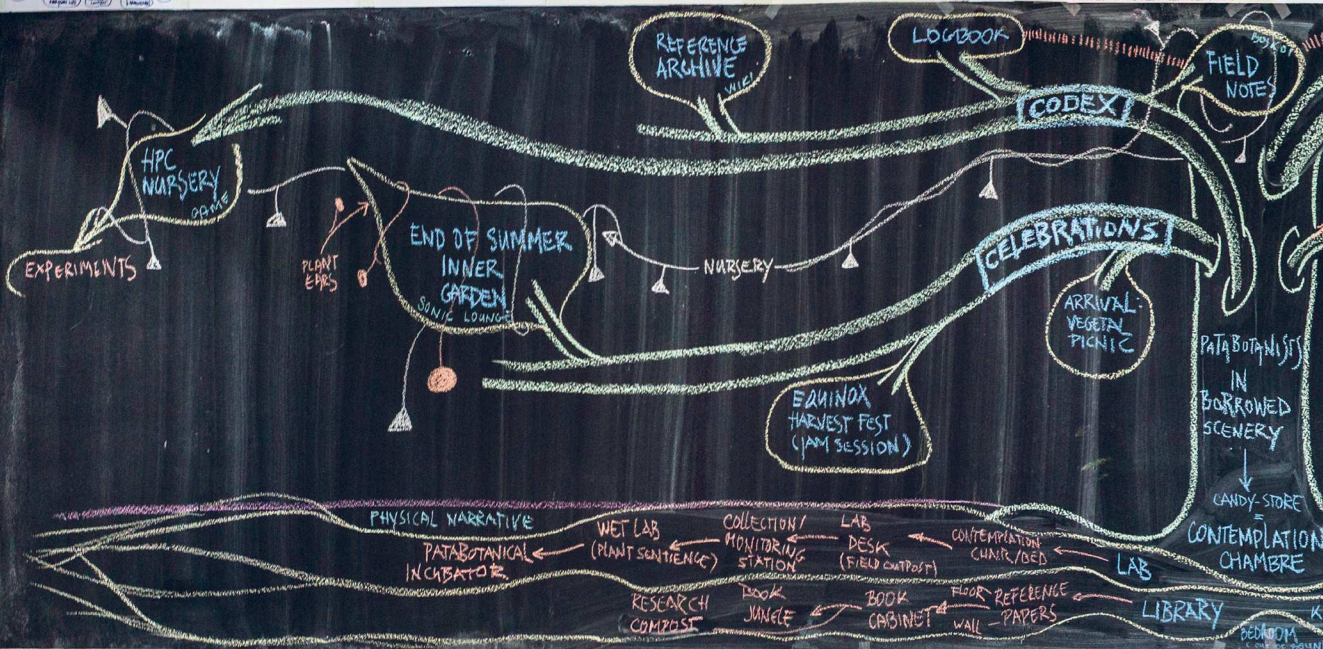 REFERENCE
ARCHIVE
WIKI
LOGBOOK
FIELD
NOTES
CODEX
HPC
NURSERY
GAME
EXPERIMENTS
PLANT
EARS
END OF SUMMER
INNER
GARDEN
SONIC LOUNGE
NURSERY
CELEBRATIONS
ARRIVAL-
VEGETAL
PICNIC
EQUINOX
HARVEST FEST
(JAM SESSION)
PATABOTANISTS
IN
BORROWED
SCENERY
CANDY-STORE
=
CONTEMPLATION
CHAMBRE
PHYSICAL NARRATIVE
PATABOTANICAL
INCUBATOR
WET LAB
(PLANT SENTIENCE)
COLLECTION/
MONITORING
STATION
LAB
DESK
(FIELD OUTPOST)
CONTEMPLATION
CHAIR/BED
LAB
RESEARCH
COMPOST
BOOK
JUNGLE
BOOK
CABINET
FLOOR-
WALL-
REFERENCE
PAPERS
LIBRARY
BEDROOM